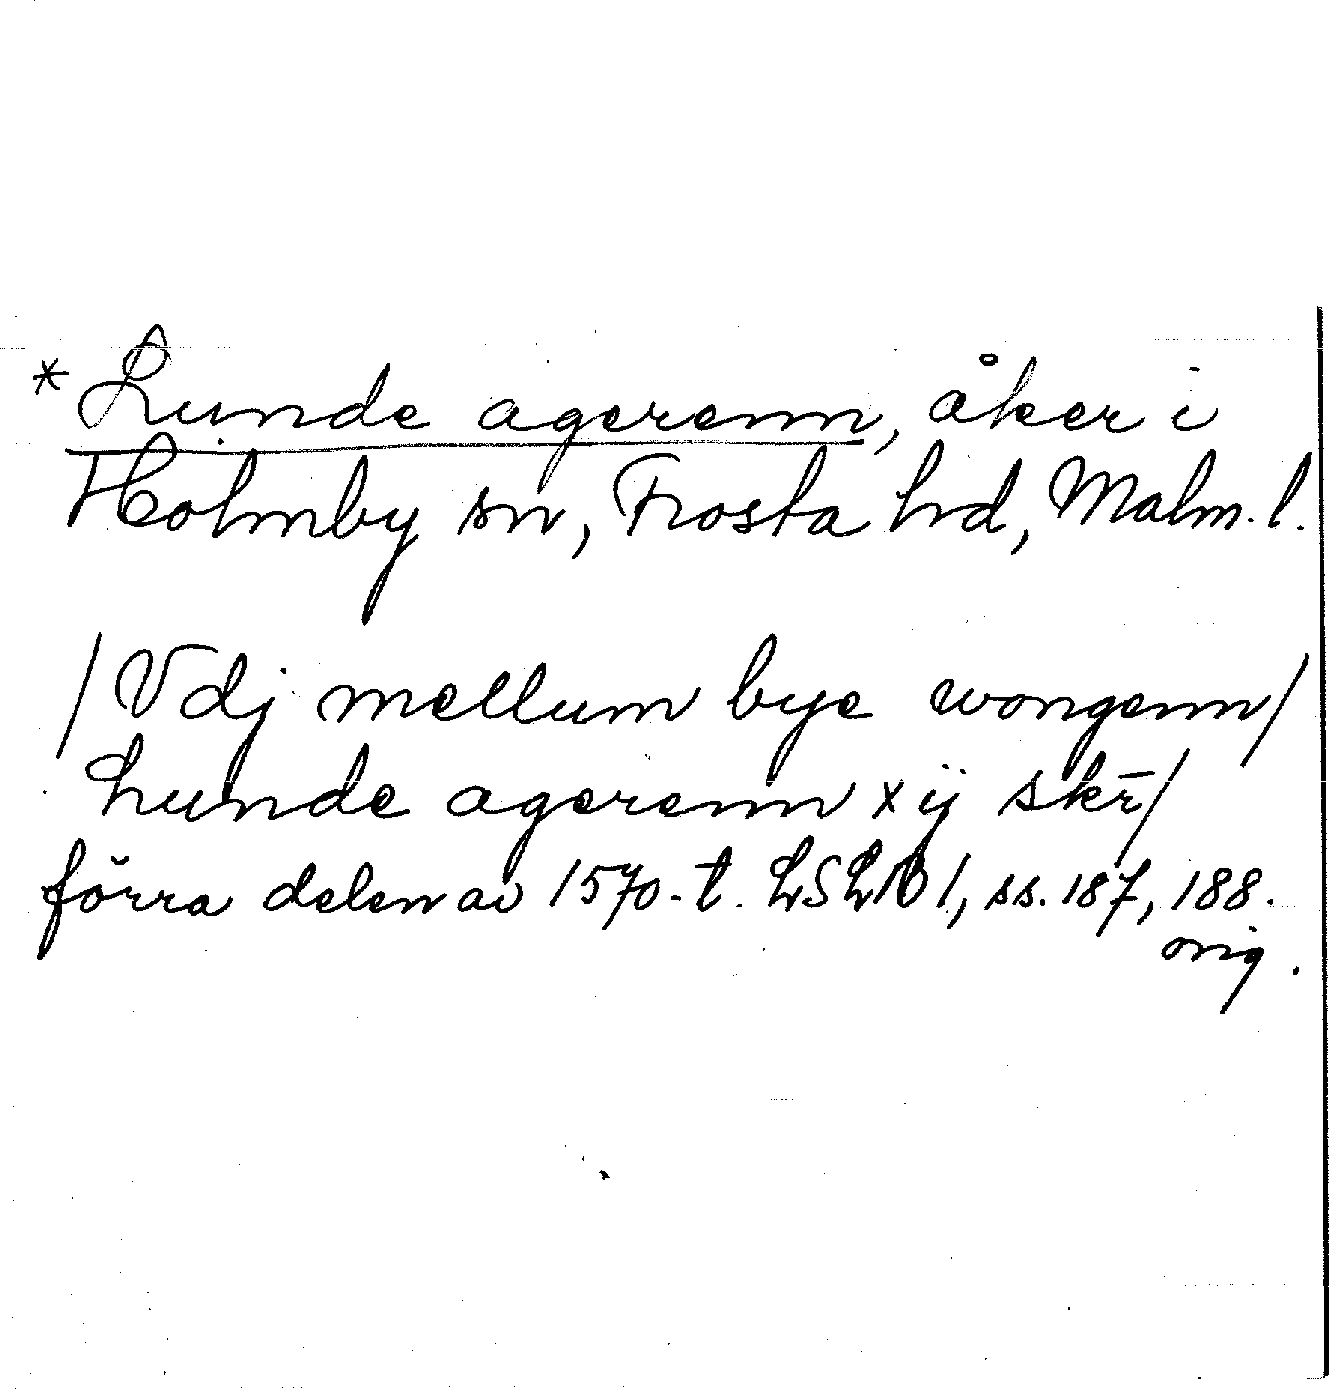 * Lunde agerenn, åker i
Holmby sn, Frosta hd, Malm. l.
/Vdj mellum bye wongenn/
Lunde agerenn x ij skr̄/
förra delen av 1570-t. LSLB 1, ss. 187, 188.
orig.